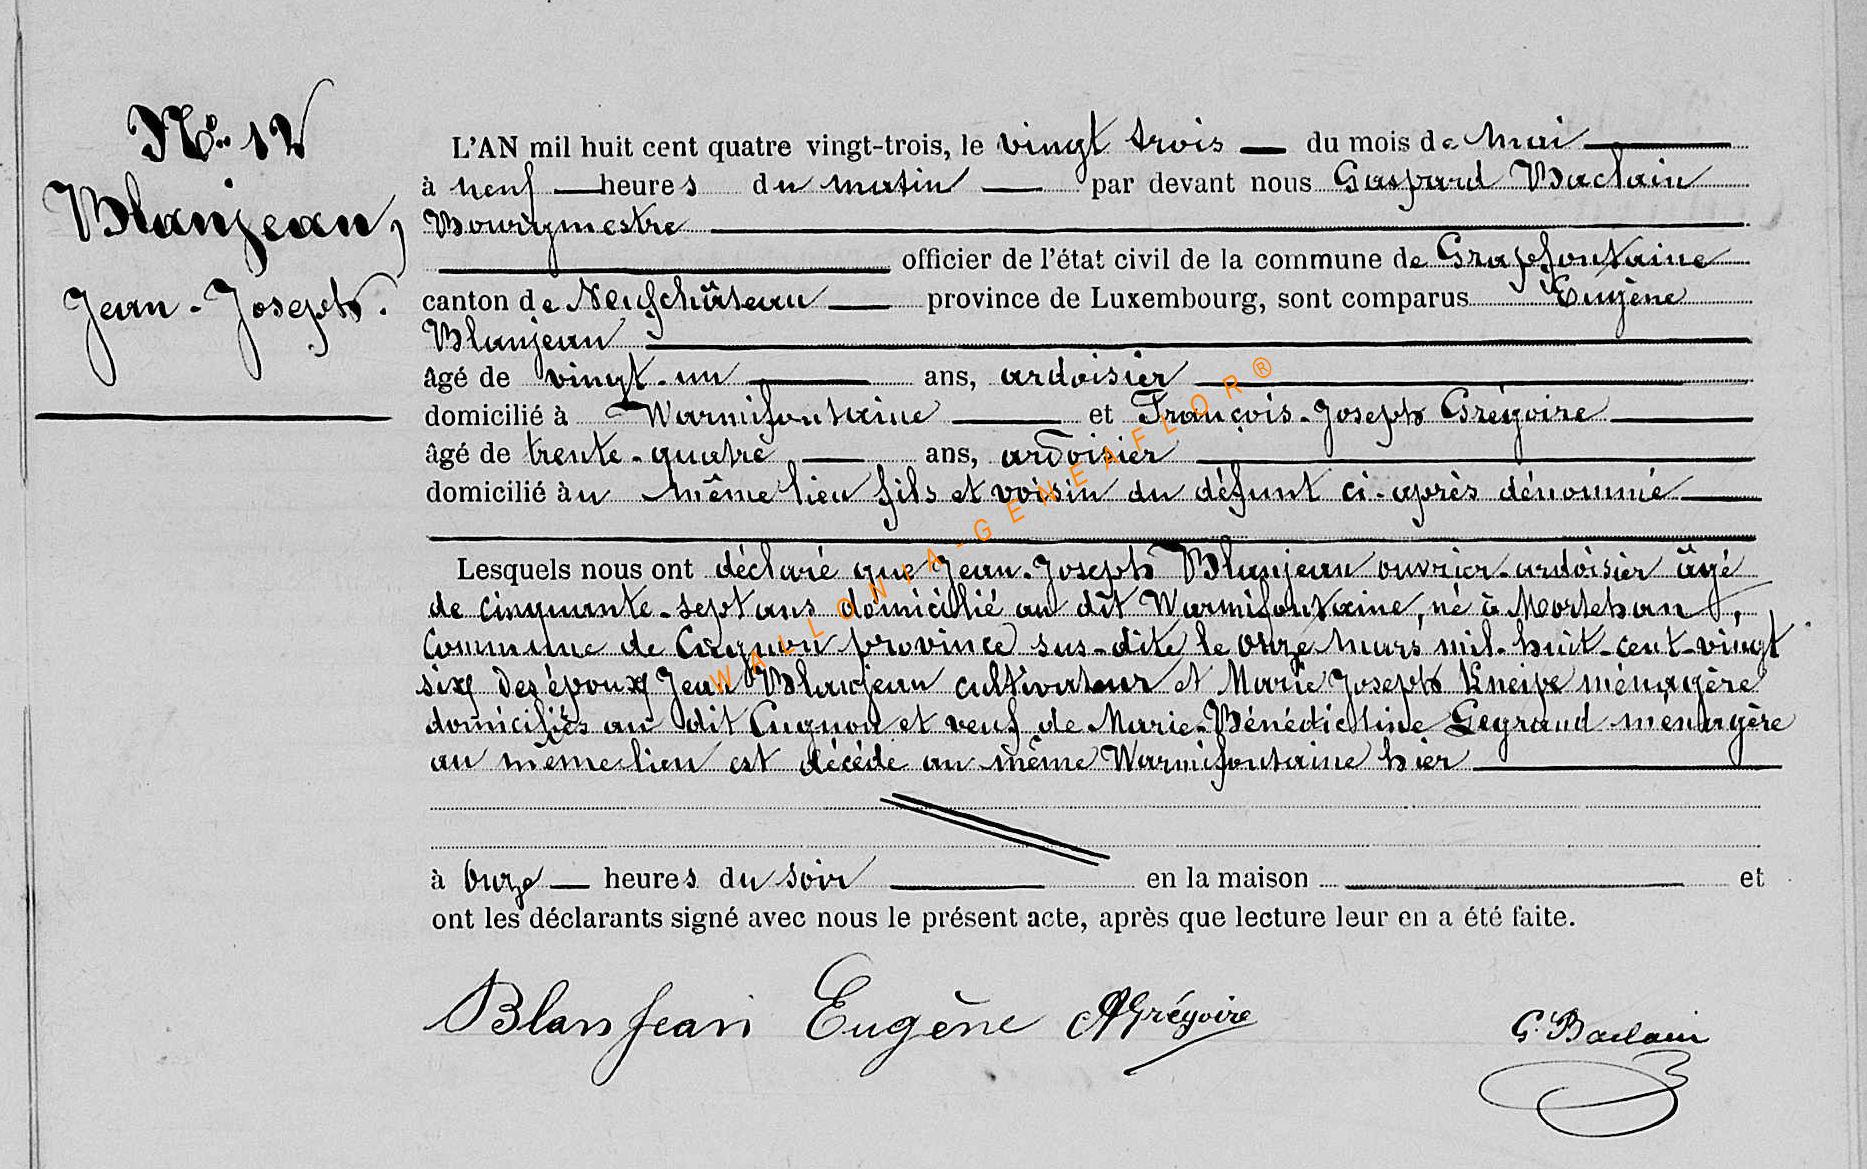 No. 12
Blanjean,
Jean-Joseph.
L'AN mil huit cent quatre vingt-trois, le vingt trois du mois de Mai
à neuf heures du matin par devant nous Gaspard Baclain
Bourgmestre
officier de l'état civil de la commune de Grapfontaine
canton de Neufchâteau province de Luxembourg, sont comparus Eugène
Blanjean
âgé de vingt-un ans, ardoisier
domicilié à Warmifontaine et François-Joseph Grégoire
âgé de trente-quatre ans, ardoisier
domicilié au même lieu fils et voisin du défunt ci-après dénommé
Lesquels nous ont déclaré que Jean-Joseph Blanjean ouvrier-ardoisier âgé
de cinquante-sept ans domicilié au dit Warmifontaine, né à Mortehan,
commune de Cugnon province sus-dite le onze mars mil-huit-cent-vingt
six des époux Jean Blanjean cultivateur et Marie Joseph Kneipe ménagère
domiciliés au dit Cugnon et veuf de Marie-Bénédictine Legrand ménagère
au même lieu est décédé au même Warmifontaine hier
à onze heures du soir en la maison et
ont les déclarants signé avec nous le présent acte, après que lecture leur en a été faite.
Blanjean Eugène Grégoire G. Baclain
WALLONIA-GENEAFLOR®